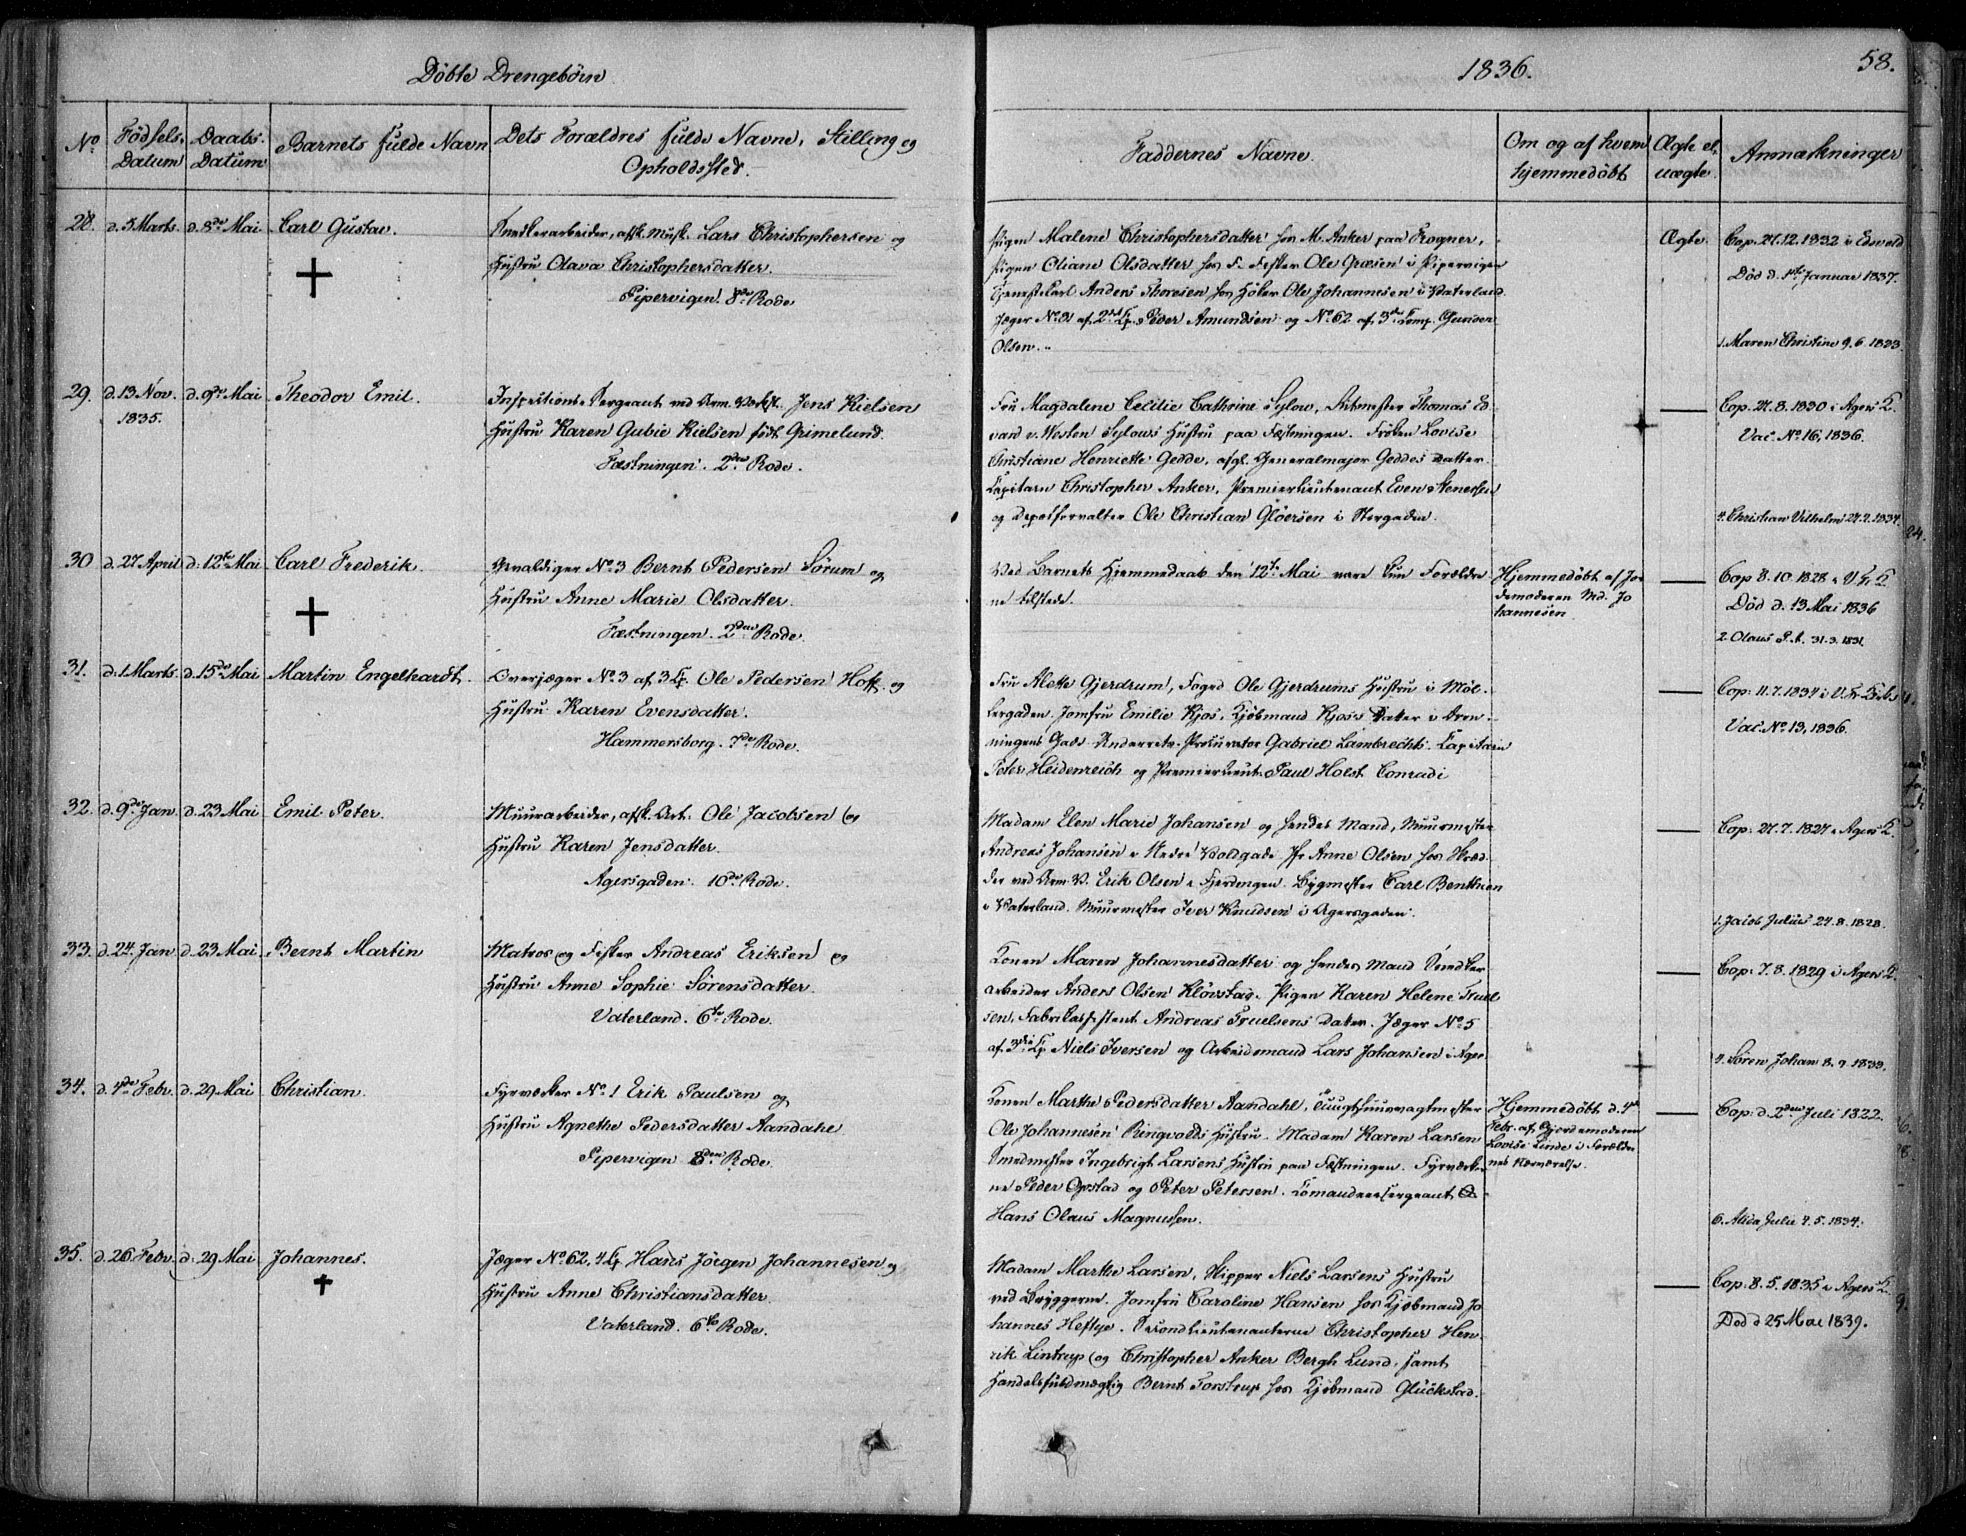 Döbte Drengebörn.
1836.
58.
No
Födsels. Datum
Daabs. Datum
Barnets fulde Navn
Dets Forældres fulde Navne, Stilling og
Opholdssted.
Faddernes Navne.
Om og af hvem
hjemmedöbt
Ægte el.
uægte.
Anmærkninger
28. d. 5 Marts. d. 8de Mai Carl Gustav.
Snedkerarbeider, afsk. Musk. Lars Christophersen og
Hustru Olava Christophersdatter.
Pipervigen. 8de Rode
Pigen Malene Christophersdatter hos M. Anker paa Frogner,
Pigen Oliane Olsdatter hos F. Fisker Ole Græsen i Pipervigen
Tjenestekarl Anders Thoresen hos Höker Ole Johannesen i Vaterland.
Jæger No 31 af 2det Cp. Peder Amundsen og No 62 af 3die Comp. Gunder
Olsen.
Ægte.
Cop. 27.12.1832 i Edsvold
Död d. 1ste Januar 1837.
1. Maren Christine 9.6.1833.
29. d. 13 Nov. d. 9de Mai Theodor Emil.
1835.
Inspections Sergeant ved Arm. Verkst. Jens Kielsen
Hustru Karen Gubie Kielsen födt Grimelund.
Fæstningen. 2den Rode.
Fru Magdalene Cecilie Cathrine Sylow, Ritmester Thomas Ed-
vard v. Westen Sylows Hustru paa Fæstningen. Fröken Lovise
Christiane Henriette Gedde, afgl. Generalmajor Geddes Datter.
Capitain Christopher Anker, Premierlieutenant Even Stenersen
og Depotforvalter Ole Christian Glöersen i Storgaden.
Cop. 27.8.1830 i Agers K.
Vac. No 16, 1836.
Christian Vilhelm 27.2.1834
30 d. 27 April d. 12te Mai Carl Frederik.
Gevaldiger No 3 Bernt Pedersen Sörum og
Hustru Anne Marie Olsdatter.
Fæstningen. 2den Rode.
Ved Barnets Hjemmedaab den 12te Mai vare kun Forældre
ne tilstede.
Hjemmedöbt af Jor
demoderen Md. Jo
hannesen
Cop 8.10.1828 i
Död d. 13 Mai 1836
2. Olaus P. A. 31.3.1831.
31. d. 1 Marts. d. 15de Mai Martin Engelhardt.
Overjæger No 3 af 3 Cp. Ole Pedersen Hoff og
Hustru Karen Evensdatter.
Hammersborg. 7de Rode.
Fru Alette Gjerdrum, Foged Ole Gjerdrums Hustru i Möl-
lergaden. Jomfru Emilie Kjos, Kjöbmand Kjoss Datter i Dron-
ningens Gade. Underrets Procurator Gabriel Lambrechts. Capitain
Peter Heidenreich og Premierlieut. Paul Holst Conradi
Cop. 11.7.1834 i
Vac. No 13, 1836.
32. d. 9de Jan d. 23 Mai Emil Peter.
Muurarbeider, afsk. Art. Ole Jacobsen og
Hustru Karen Jensdatter.
Agersgaden. 10de Rode.
Madam Elen Marie Johansen og hendes Mand, Muurmester
Andreas Johansen i Nedre Voldgade Pg Anne Olsen hos Skræd-
der ved Arm. V. Erik Olsen i Fjerdingen. Bygmester Carl Benthien
i Vaterland. Muurmester Iver Knudsen i Agersgaden.
Cop. 27.7.1827 i Agers K.
1. Jacob Julius 24.8.1828.
33. d. 24. Jan d. 23 Mai. Bernt Martin
Matros og Fisker Andreas Eriksen og
Hustru Anne Sophie Sörensdatter.
Vaterland. 6te Rode.
Konen Maren Johannesdatter og hendes Mand Snedker
arbeider Anders Olsen Klövstad. Pigen Karen Helene Truel
sen, Fabrikassistent Andreas Truelsens Datter. Jæger No 5
af 3die Cp. Niels Iversen og Arbeidsmand Lars Johansen i Ager.
Cop. 7.8.1829 i Agers K.
Sören Johan 8.9.1833.
34. d. 4de Febr. d. 29 Mai Christian.
Fyrværker No 1 Erik Paulsen og
Hustru Agnethe Pedersdatter Aandahl
Pipervigen 8den Rode.
Konen Marthe Pedersdatter Aandahl, Tuugthuusvagtmester
Ole Johannesen Ringvolds Hustru. Madam Karen Larsen
Smedmester Ingebrigt Larsens Hustru paa Fæstningen. Fyrværker
ne Peder Opstad og Peter Petersen. Comandeersergeant
Hans Olaus Magnussen.
Hjemmedöbt d. 4de
Febr. af Gjordemoderen
Lovise Linde i Forældre
nes Nærværelse.
Cop. d. 2den Juli 1822.
6. Alida Julie 4.5.1834.
35. d. 26 Febr. d. 29 Mai Johannes.
Jæger No 62, 4 Cp. Hans Jörgen Johannesen og
Hustru Anne Christiansdatter.
Vaterland. 6te Rode.
Madam Marthe Larsen, Skipper Niels Larsens Hustru
ved Bryggerne. Jomfru Caroline Hansen hos Kjöbmand Jo
hannes Heftye. Secondlieutenanterne Christopher Hen-
rik Lintrup og Christopher Anker Bergh Lund, samt
Handelsfuldmægtig Bernt Torstrup hos Kjöbmand Glückstad.
Cop. 8.5.1835 i Agers K.
Död d 25 Mai 1839.